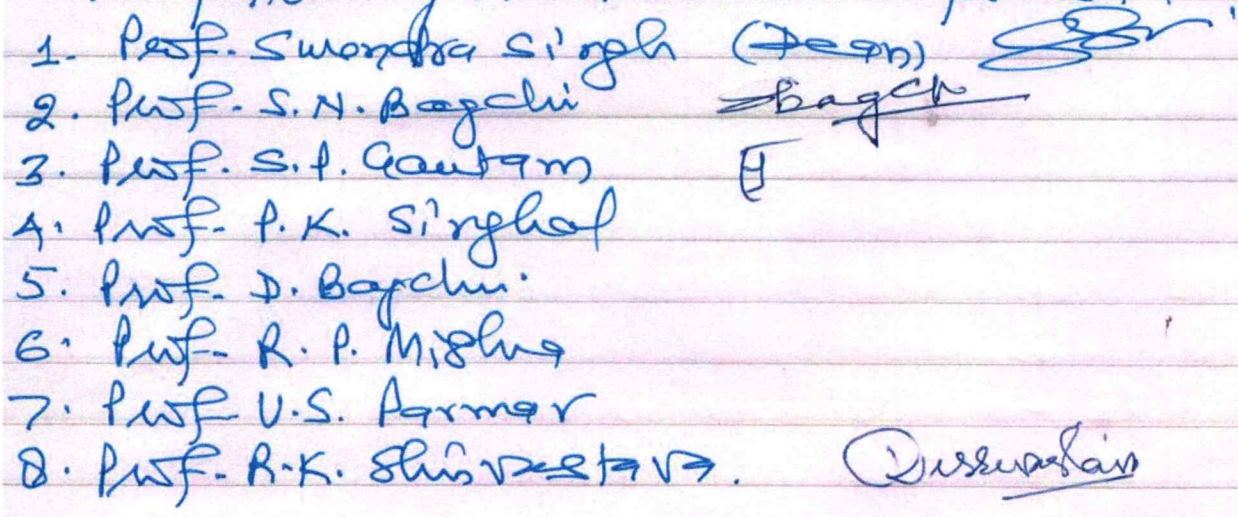 1. Prof. Surendra Singh (Dean)
2. Prof. S. N. Bagchi Bagchi
3. Prof. S. P. Gautam
4. Prof. P. K. Singhal
5. Prof. D. Bagchi.
6. Prof. R. P. Mishra
7. Prof U.S. Parmar
8. Prof. R.K. Shrivastava.